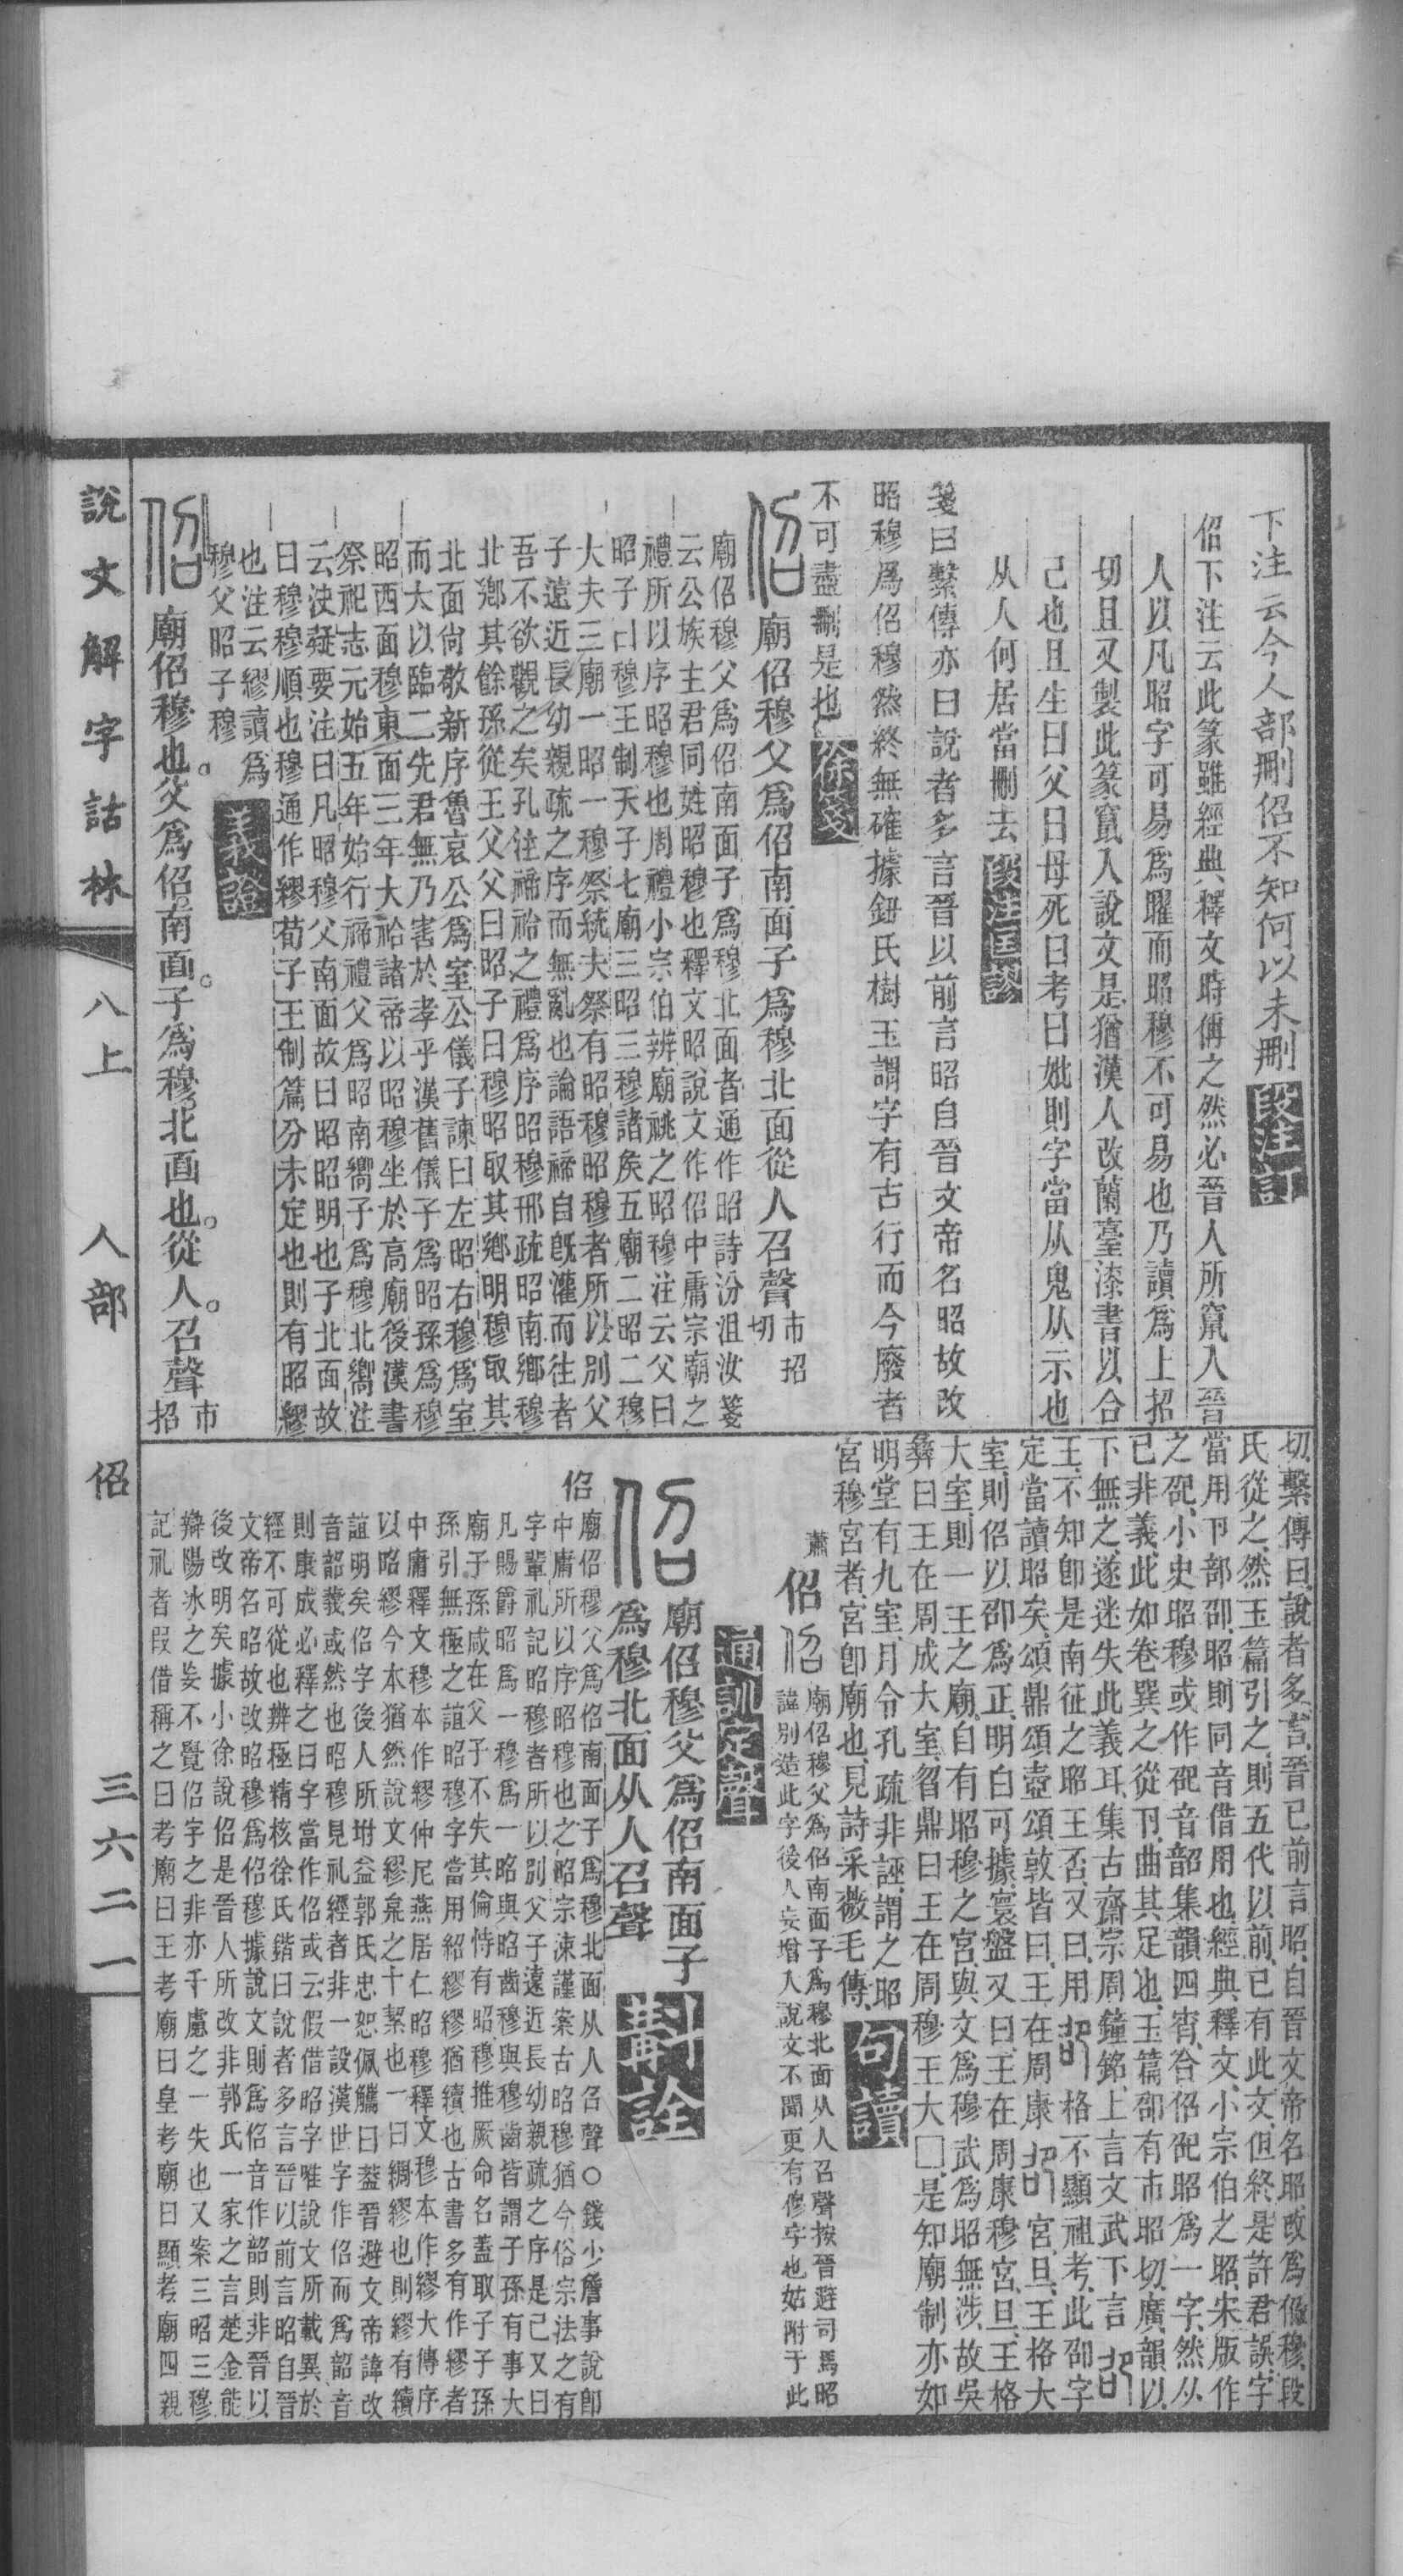 下注云今人部刪佋不知何以未刪段注訂
佋下注云此篆雖經典釋文時偁之然必晉人所竄入晉
人以凡昭字可易爲曜而昭穆不可易也乃讀爲上招
切且又製此篆竄入說文是猶漢人改蘭臺漆書以合
己也且生曰父曰母死曰考曰妣則字當从鬼从示也
从人何居當刪去段注匡謬
箋曰繫傳亦曰說者多言晉以前言昭自晉文帝名昭故改
昭穆爲佋穆然終無確據鈕氏樹玉謂字有古行而今廢者
不可盡刪是也徐箋
佋廟佋穆父爲佋南面子爲穆北面從人召聲市招切
廟佋穆父爲佋南面子爲穆北面者通作昭詩汾沮汝箋
云公族主君同姓昭穆也釋文昭說文作佋中庸宗廟之
禮所以序昭穆也周禮小宗伯辨廟祧之昭穆注云父曰
昭子曰穆王制天子七廟三昭三穆諸矦五廟二昭二穆
大夫三廟一昭一穆祭統夫祭有昭穆昭穆者所以別父
子遠近長幼親疏之序而無亂也論語禘自旣灌而往者
吾不欲觀之矣孔注禘祫之禮爲序昭穆邢疏昭南鄉穆
北鄉其餘孫從王父父曰昭子曰穆昭取其鄉明穆取其
北面尙敬新序魯哀公爲室公儀子諫曰左昭右穆爲室
而大以臨二先君無乃害於孝乎漢舊儀子爲昭孫爲穆
昭西面穆東面三年大祫諸帝以昭穆坐於高廟後漢書
祭祀志元始五年始行禘禮父爲昭南嚮子爲穆北嚮注
云決疑要注曰凡昭穆父南面故曰昭昭明也子北面故
曰穆穆順也穆通作繆荀子王制篇分未定也則有昭繆
也注云繆讀爲
穆父昭子穆義證
佋廟佋穆也。父爲佋南面。子爲穆北面也。從人。召聲市招
切繫傳曰說者多言晉已前言昭自晉文帝名昭改爲佋穆段
氏從之然玉篇引之則五代以前已有此文但終是許君誤字
當用卩部卲昭則同音借用也經典釋文小宗伯之昭宋版作
之㲈小史昭穆或作㲈音韶集韻四宵合佋㲈昭爲一字然从
已非義此如卷巽之從卩曲其足也玉篇卲有市昭切廣韻以
下無之遂迷失此義耳集古齋宗周鐘銘上言文武下言卲
王不知卽是南征之昭王否又曰用卲格不顯祖考此卲字
定當讀昭矣頌鼎頌壺頌敦皆曰王在周康卲宮旦王格大
室則佋以卲爲正明白可據寰盤又曰王在周康穆宮旦王格
大室則一王之廟自有昭穆之宮與文爲穆武爲昭無涉故吳
彝曰王在周成大室曶鼎曰王在周穆王大□是知廟制亦如
明堂有九室月令孔疏非誣謂之昭
宮穆宮者宮卽廟也見詩采薇毛傳句讀
蕭佋佋廟佋穆父爲佋南面子爲穆北面从人召聲按晉避司馬昭
諱別造此字後人妄增入說文不聞更有㣎字也姑附于此
通訓定聲
佋廟佋穆父爲佋南面子
爲穆北面从人召聲斠詮
佋廟佋穆父爲佋南面子爲穆北面从人召聲○錢少詹事說卽
中庸所以序昭穆也之昭宗涑謹案古昭穆猶今俗宗法之有
字輩礼記昭穆者所以別父子遠近長幼親疏之序是已又曰
凡賜爵昭爲一穆爲一昭與昭齒穆與穆齒皆謂子孫有事大
廟子孫咸在父子不失其倫恃有昭穆推厥命名蓋取子子孫
孫引無極之誼昭穆字當用紹繆繆猶續也古書多有作繆者
中庸釋文穆本作繆仲尼燕居仁昭穆釋文穆本作繆大傳序
以昭繆今本猶然說文繆枲之十絜也一曰綢繆也則繆有續
誼明矣佋字後人所坿益郭氏忠恕佩觿曰葢晉避文帝諱改
音韶義或然也昭穆見礼經者非一設漢世字作佋而爲韶音
則康成必釋之曰字當作佋或云假借昭字唯說文所載異於
經不可從也辨極精核徐氏鍇曰說者多言晉以前言昭自晉
文帝名昭故改昭穆爲佋穆據說文則爲佋音作韶則非晉以
後改明矣據小徐說佋是晉人所改非郭氏一家之言楚金能
辯陽冰之妄不覺佋字之非亦千慮之一失也又案三昭三穆
記礼者叚借稱之曰考廟曰王考廟曰皇考廟曰顯考廟四親
說文解字詁林 八上 人部 佋 三六二一